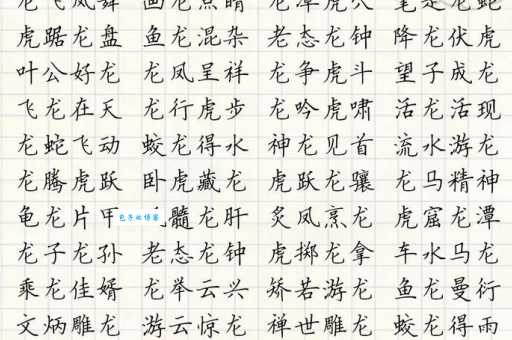 龙飞凤舞 画龙点睛 龙潭虎穴 笔走龙蛇
虎踞龙盘 鱼龙混杂 老态龙钟 降龙伏虎
叶公好龙 龙凤呈祥 龙争虎斗 望子成龙
飞龙在天 龙行虎步 龙吟虎啸 活龙活现
龙蛇飞动 蛟龙得水 神龙见首 流水游龙
龙腾虎跃 卧虎藏龙 虎跃龙骧 龙马精神
龟龙片甲 髓龙肝 炙凤烹龙 虎窟龙潭
包子ai博客
龙子龙孙 老态龙钟 虎掷龙拿 车水马龙
乘龙佳婿 龙举云兴 矫若游龙 鱼龙曼衍
文炳雕龙 游云惊龙 禅世雕龙 蛟龙得雨